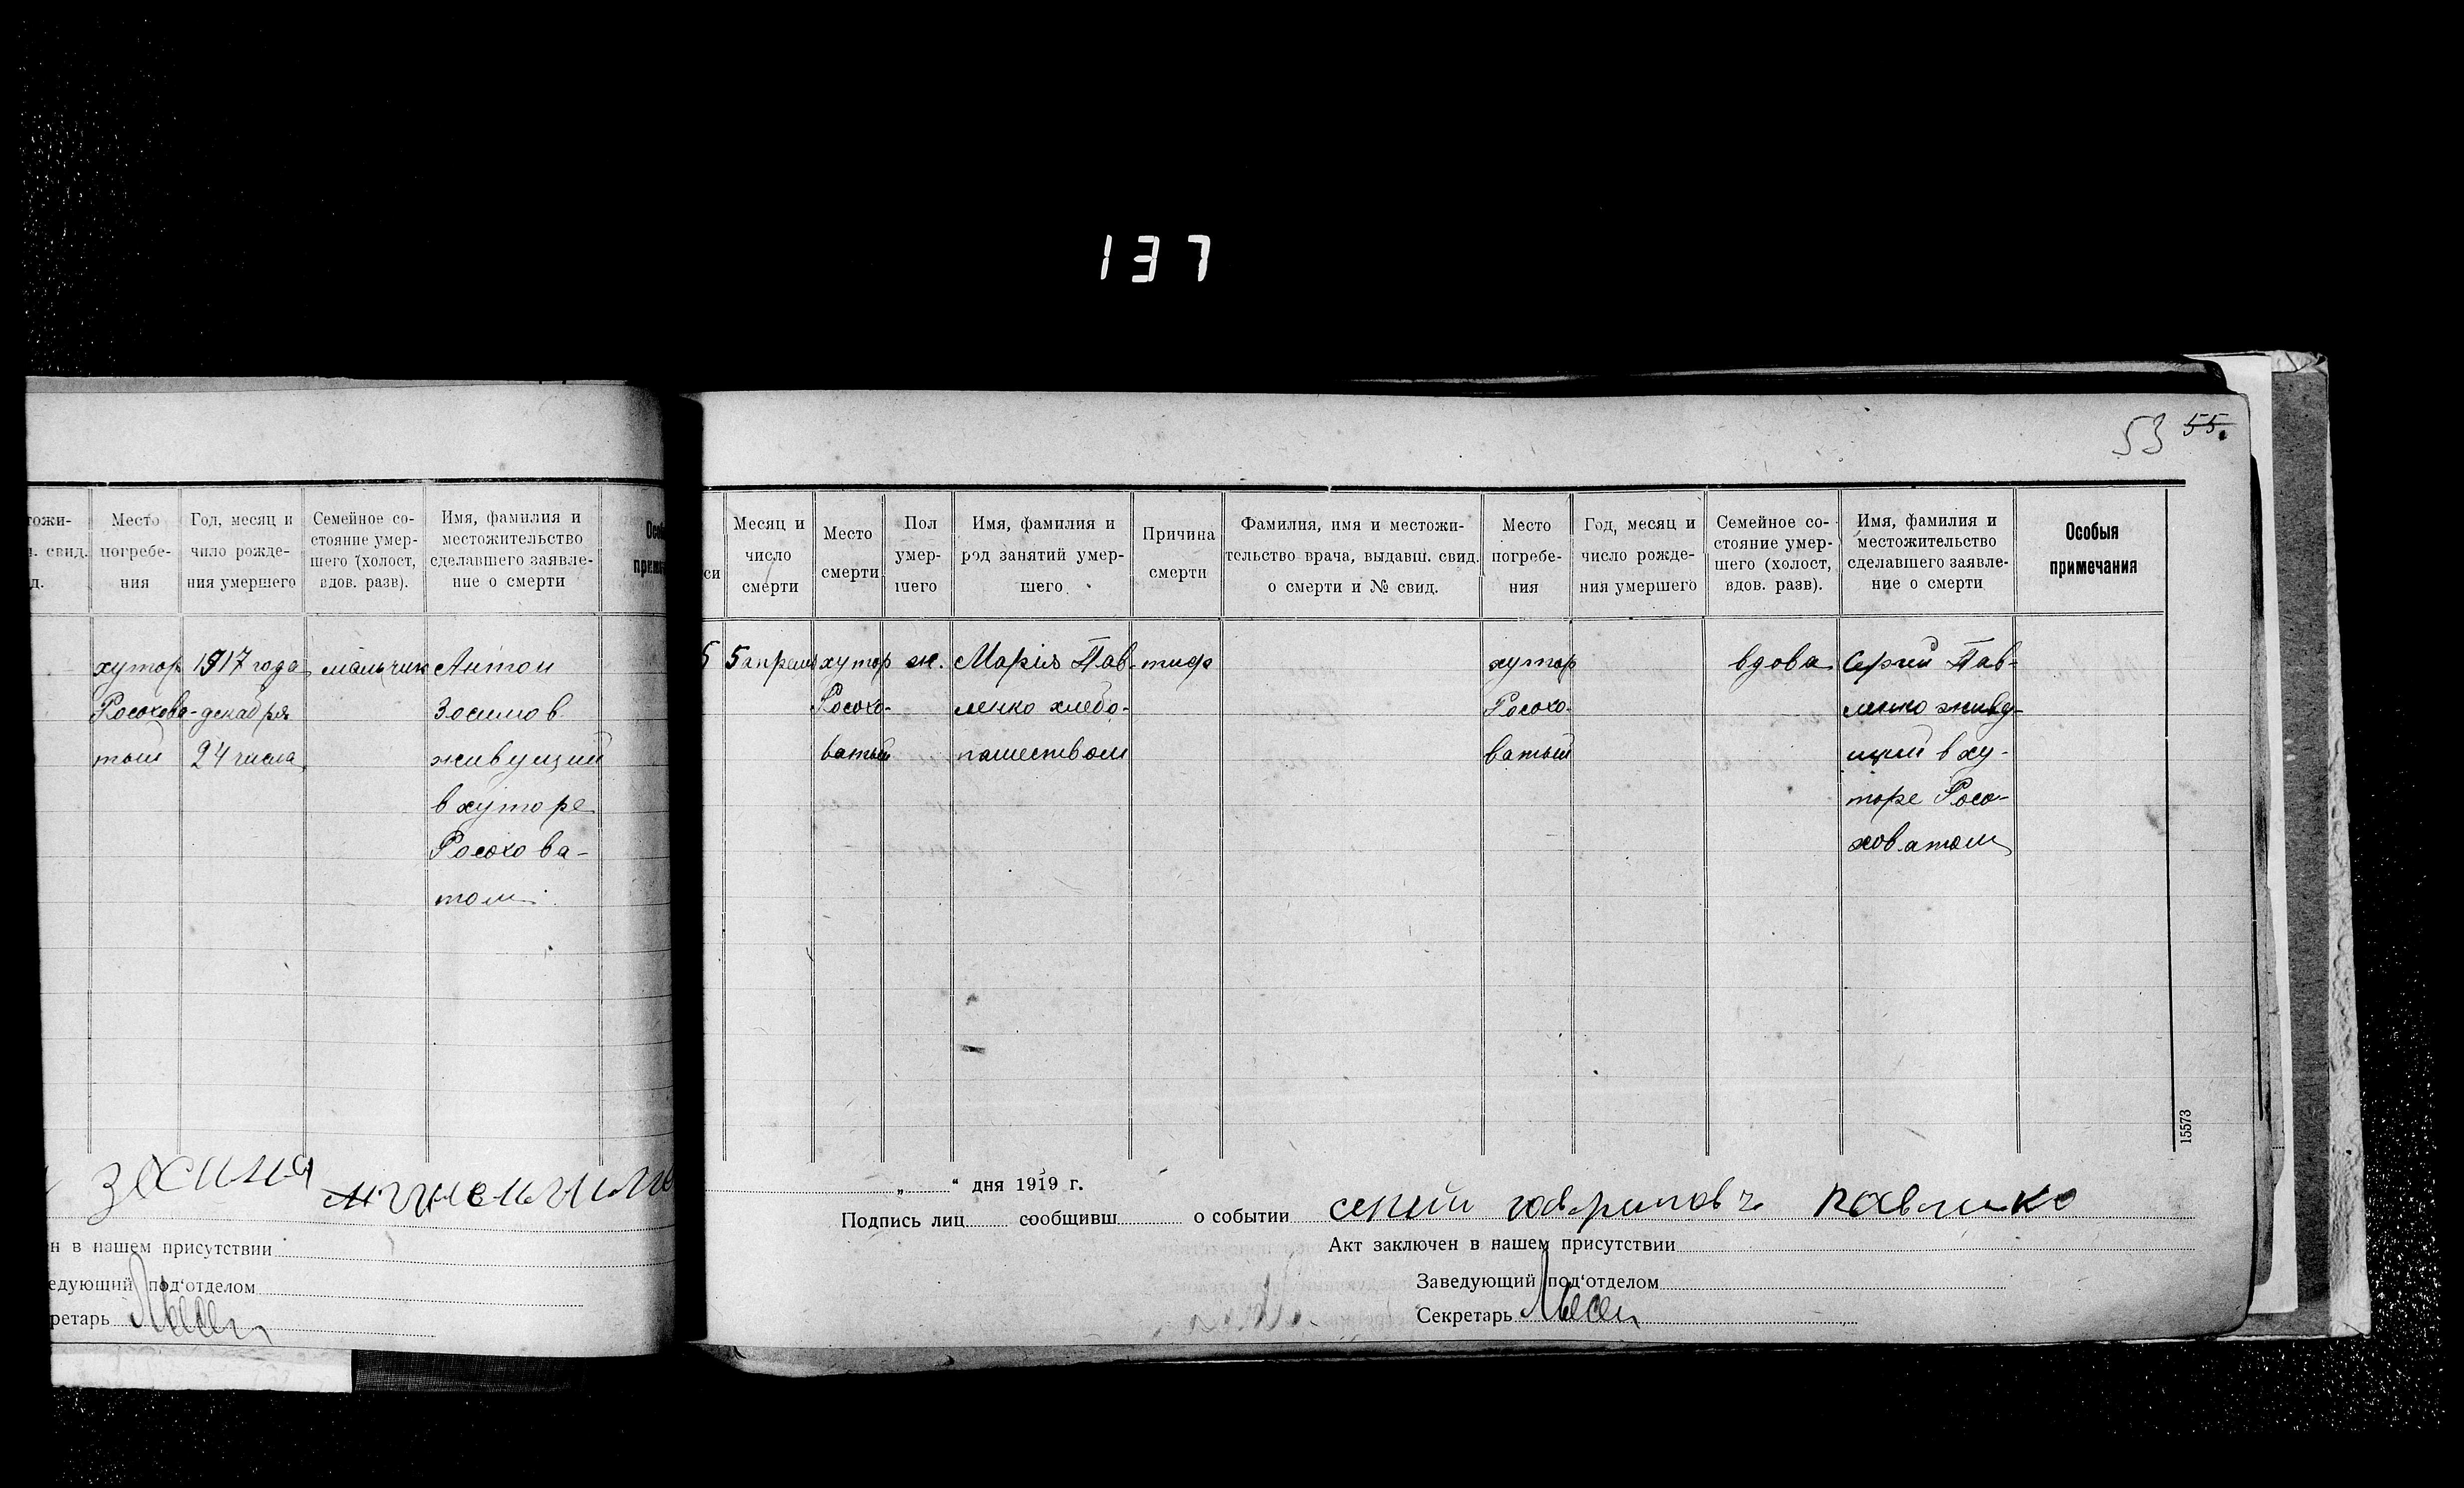 137
53 55.
тожи-
свид.
д.
Место
погребе-
ния
Год, месяц и
число рожде-
ния умершего
Семейное со-
стояние умер-
шего (холост,
вдов. разв).
Имя, фамилия и
местожительство
сделавшего заявле-
ние о смерти
хутор 1917 года мальчик Антон
Росохова- декабря Зосимов
тый 24 числа живущий
в хуторе
Росохова-
том
зосима
н в нашем присутствии
едующий под'отделом
ретарь
си
Месяц и
число
смерти
Место
смерти
Пол
умер-
шего
Имя, фамилия и
род занятий умер-
шего
Причина
смерти
Фамилия, имя и местожи-
тельство врача, выдавш. свид.
о смерти и № свид.
Место
погребе-
ния
Год, месяц и
число рожде-
ния умершего
Семейное со-
стояние умер-
шего (холост,
вдов. разв).
Имя, фамилия и
местожительство
сделавшего заявле-
ние о смерти
Особыя
примечания
5 апреля хутор ж. Марія Пав- тиф хутор вдова Сергей Пав-
Росохо- ленко хлебо- Росохо- ленко живу-
ватый пашеством ватый щий в ху-
торе Росо-
ховатом
15573
„ “ дня 1919 г.
Подпись лиц сообщивш о событии сергий гаврилович павленко
Акт заключен в нашем присутствии
Заведующий под'отделом
Секретарь